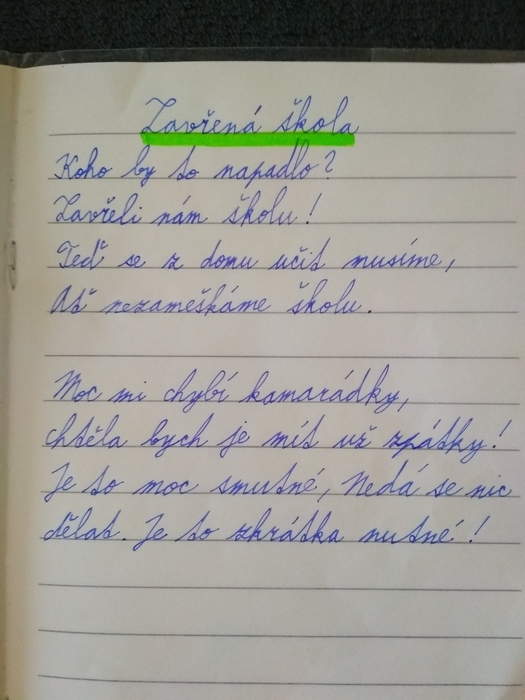 Zavřená škola
Koho by to napadlo?
Zavřeli nám školu!
Teď se z domu učit musíme,
Ať nezameškáme školu.
Moc mi chybí kamarádky,
chtěla bych je mít už zpátky!
Je to moc smutné, Nedá se nic
dělat. Je to zkrátka nutné!